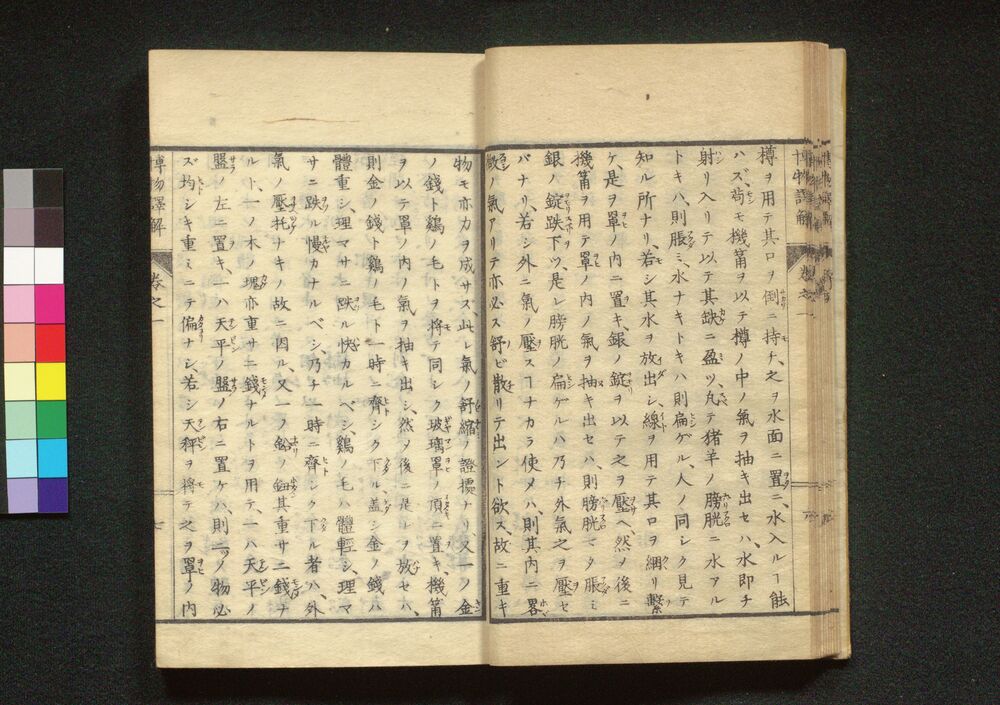 樽ヲ用テ其口ヲ倒ニ持チ、之ヲ水面ニ置ニ、水入ルヿ能
ハズ、苟モ機筩ヲ以テ樽ノ中ノ氣ヲ抽キ出セハ、水即チ
射リ入リテ以テ其缺ニ盈ツ、丸テ猪羊ノ膀胱ニ水アル
トキハ、則脹ミ、水ナキトキハ則扁ゲル、人ノ同シク見テ
知ル所ナリ、若シ其水ヲ放出シ、線ヲ用テ其口ヲ綑リ繋
ケ、是ヲ罩ノ內ニ置キ、銀ノ錠ヲ以テ之ヲ壓ヘ然ヲ後ニ
機筩ヲ用テ罩ノ內ノ氣ヲ抽キ出セハ、則膀胱モタ脹ミ
銀ノ錠跌下ツ、是レ膀胱ノ扁ゲルハ乃チ外氣之ヲ壓セ
バナリ、若シ外ニ氣ノ壓スヿナカラ使メハ、則其內ニ畧
微ノ氣アリテ亦必ス舒ビ散リテ出ント欲ス、故ニ重キ
物モ亦力ヲ成サス、此レ氣ノ舒縮ノ證據ナリ又一ノ金
ノ錢ト鷄ノ毛トヲ將テ同シク玻璃罩ノ頂ニ置キ、機筩
ヲ以テ罩ノ內ノ氣ヲ抽キ出シ、然メ後ニ是レヲ放セハ、
則金ノ錢ト鷄ノ毛ト一時ニ齊シク下ル、盖シ金ノ錢ハ
體重シ、理マサニ跌ル快カルベシ、鷄ノ毛ハ體輕シ、理マ
サニ跌ル慢カナルベシ乃チ一時ニ齊シク下ル者ハ、外
氣ノ壓托ナキノ故ニ因ル、又一ノ鉛ノ鈕其重サ二錢ナ
ルト、一ノ木ノ塊亦重サ二錢ナルトヲ用テ、一ハ天平ノ
盤ノ左ニ置キ、一ハ天平ノ盤ノ右ニ置ケハ、則二ツノ物必
ズ均シキ重ミニテ偏ナシ若シ天秤ヲ將テ之ヲ罩ノ內
博物譯解
卷之一
七